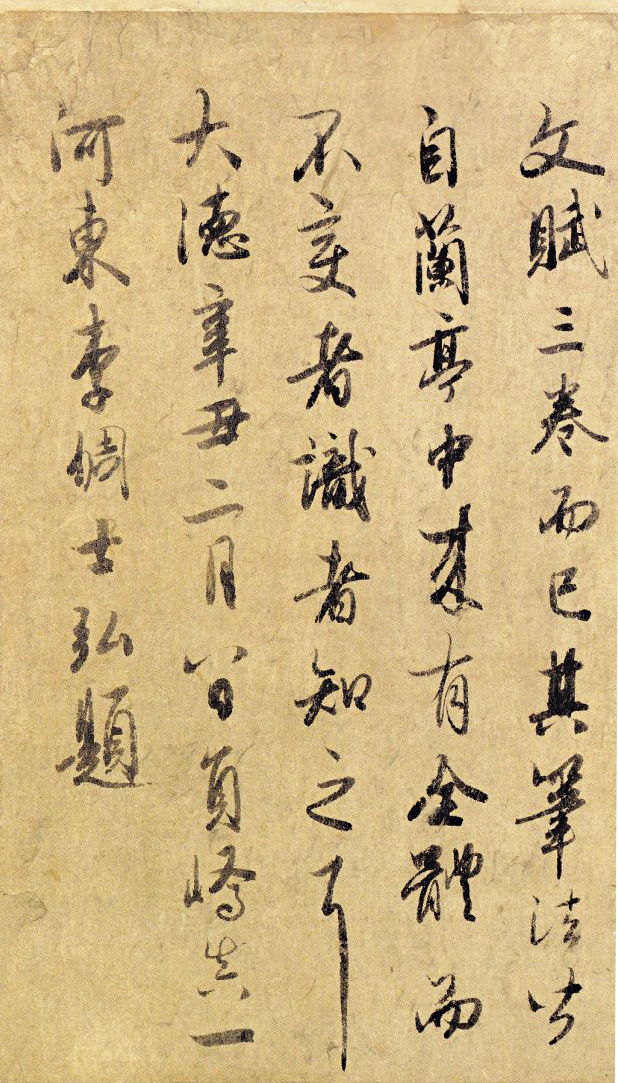 文賦三卷而已其筆法皆
自蘭亭中來有全體而
不變者識者知之耳
大德辛丑二月八日員嶠真一
河東李倜士弘題